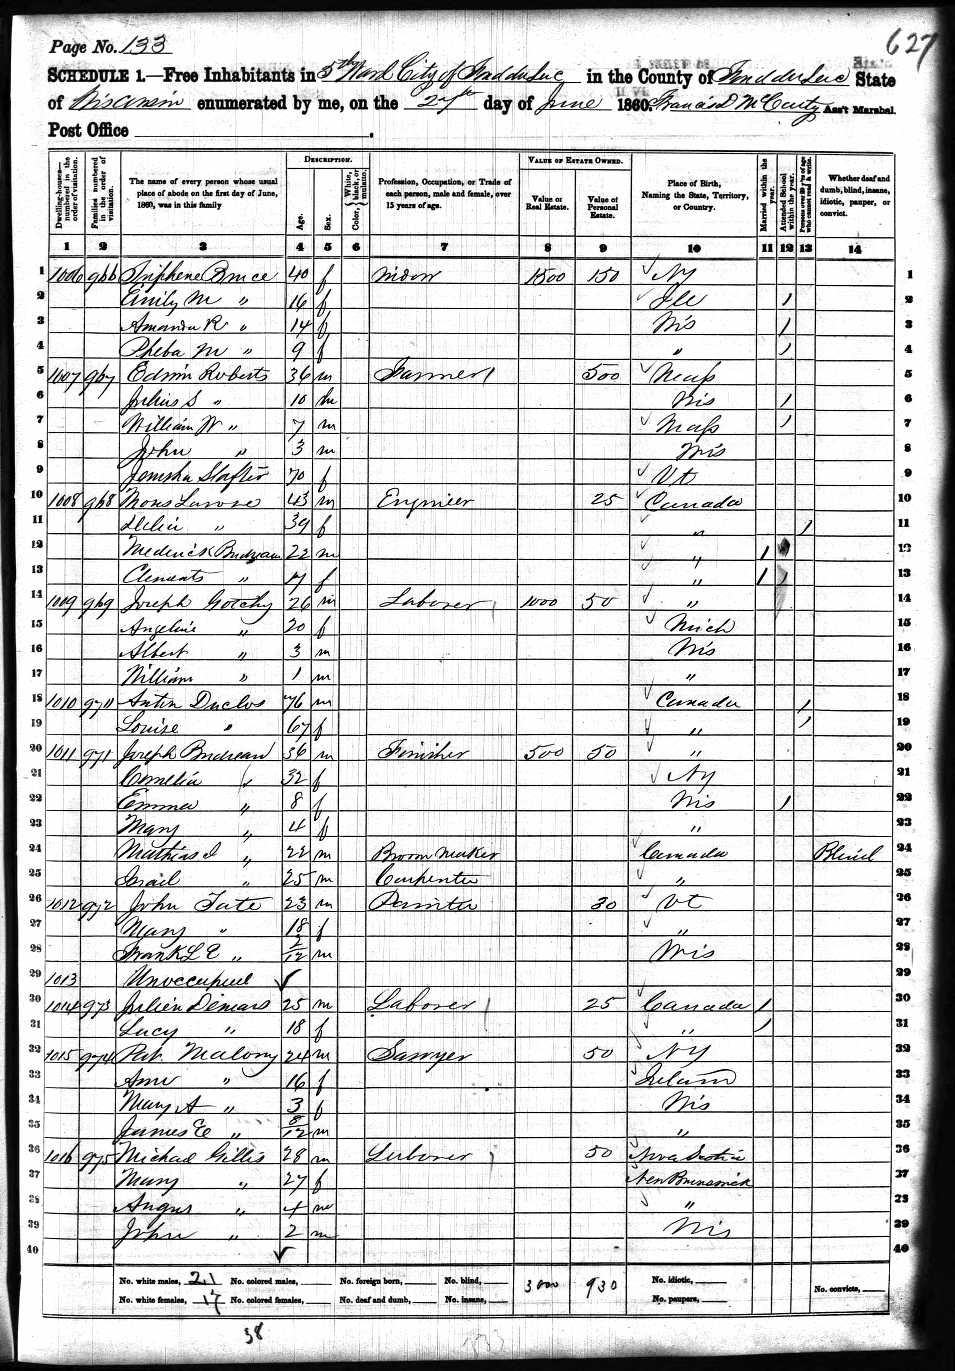 Page No. 133
627
SCHEDULE 1.—Free Inhabitants in 5th Ward City of Fond du Lac in the County of Fond du Lac State
of Wisconsin enumerated by me, on the 27th day of June 1860. Francis D McCarty Ass't Marshal.
Post Office
Dwelling-houses—numbered in the order of visitation.
Families numbered in the order of visitation.
The name of every person whose usual place of abode on the first day of June, 1860, was in this family
DESCRIPTION.
Age.
Sex.
Color, {White, black, or mulatto.
Profession, Occupation, or Trade of each person, male and female, over 15 years of age.
VALUE OF ESTATE OWNED.
Value of Real Estate.
Value of Personal Estate.
Place of Birth, Naming the State, Territory, or Country.
Married within the year.
Attended School within the year.
Persons over 20 y'rs of age who cannot read & write.
Whether deaf and dumb, blind, insane, idiotic, pauper, or convict.
1 2 3 4 5 6 7 8 9 10 11 12 13 14
1 1006 966 Bruce 40 f Widow 1500 150 NY 1
2 Emily M " 16 f Ill / 2
3 Amanda R " 14 f Wis / 3
4 Pheba M " 9 f " / 4
5 1007 967 Edwin Roberts 36 m Farmer 500 Mass 5
6 Julius S " 10 m Wis / 6
7 William W " 7 m Mass / 7
8 John " 3 m Wis 8
9 70 f Vt 9
10 1008 968 43 m Engineer 25 Canada 10
11 " 39 f " / 11
12 22 m " / 12
13 " 17 f " / / 13
14 1009 969 Joseph Gotchy 26 m Laborer 1000 50 " 14
15 Angeline " 20 f Mich 15
16 Albert " 3 m Wis 16
17 William " 1 m " 17
18 1010 970 Antin Duclos 76 m Canada / 18
19 Louise " 67 f " / 19
20 1011 971 Joseph Budreau 36 m Finisher 500 50 " 20
21 Cornelia " 32 f NY 21
22 Emma " 8 f Wis / 22
23 Mary " 4 f " 23
24 Mathias J " 22 m Broom Maker Canada Blind 24
25 Israil " 25 m Carpenter " 25
26 1012 972 John Tate 23 m Painter 30 Vt 26
27 Mary " 18 f " 27
28 Frank L E " 2/12 m Wis 28
29 1013 Unoccupied ✓ 29
30 1014 973 Julien Demars 25 m Laborer 25 Canada / 30
31 Lucy " 18 f " / 31
32 1015 974 Pat Malony 24 m Sawyer 50 NY 32
33 Ann " 16 f 33
34 Mary A " 3 f Wis 34
35 James E " 8/12 m " 35
36 1016 975 Michael Gillis 28 m Laborer 50 Nova Scotia 36
37 Mary " 27 f New Brunswick 37
38 Angus " 4 m " 38
39 John " 2 m Wis 39
40 ✓ 40
No. white males, 21 No. colored males, No. foreign born, No. blind, 3000 930 No. idiotic,
No. white females, 17 No. colored females, No. deaf and dumb, No. insane, No. paupers, No. convicts,
38